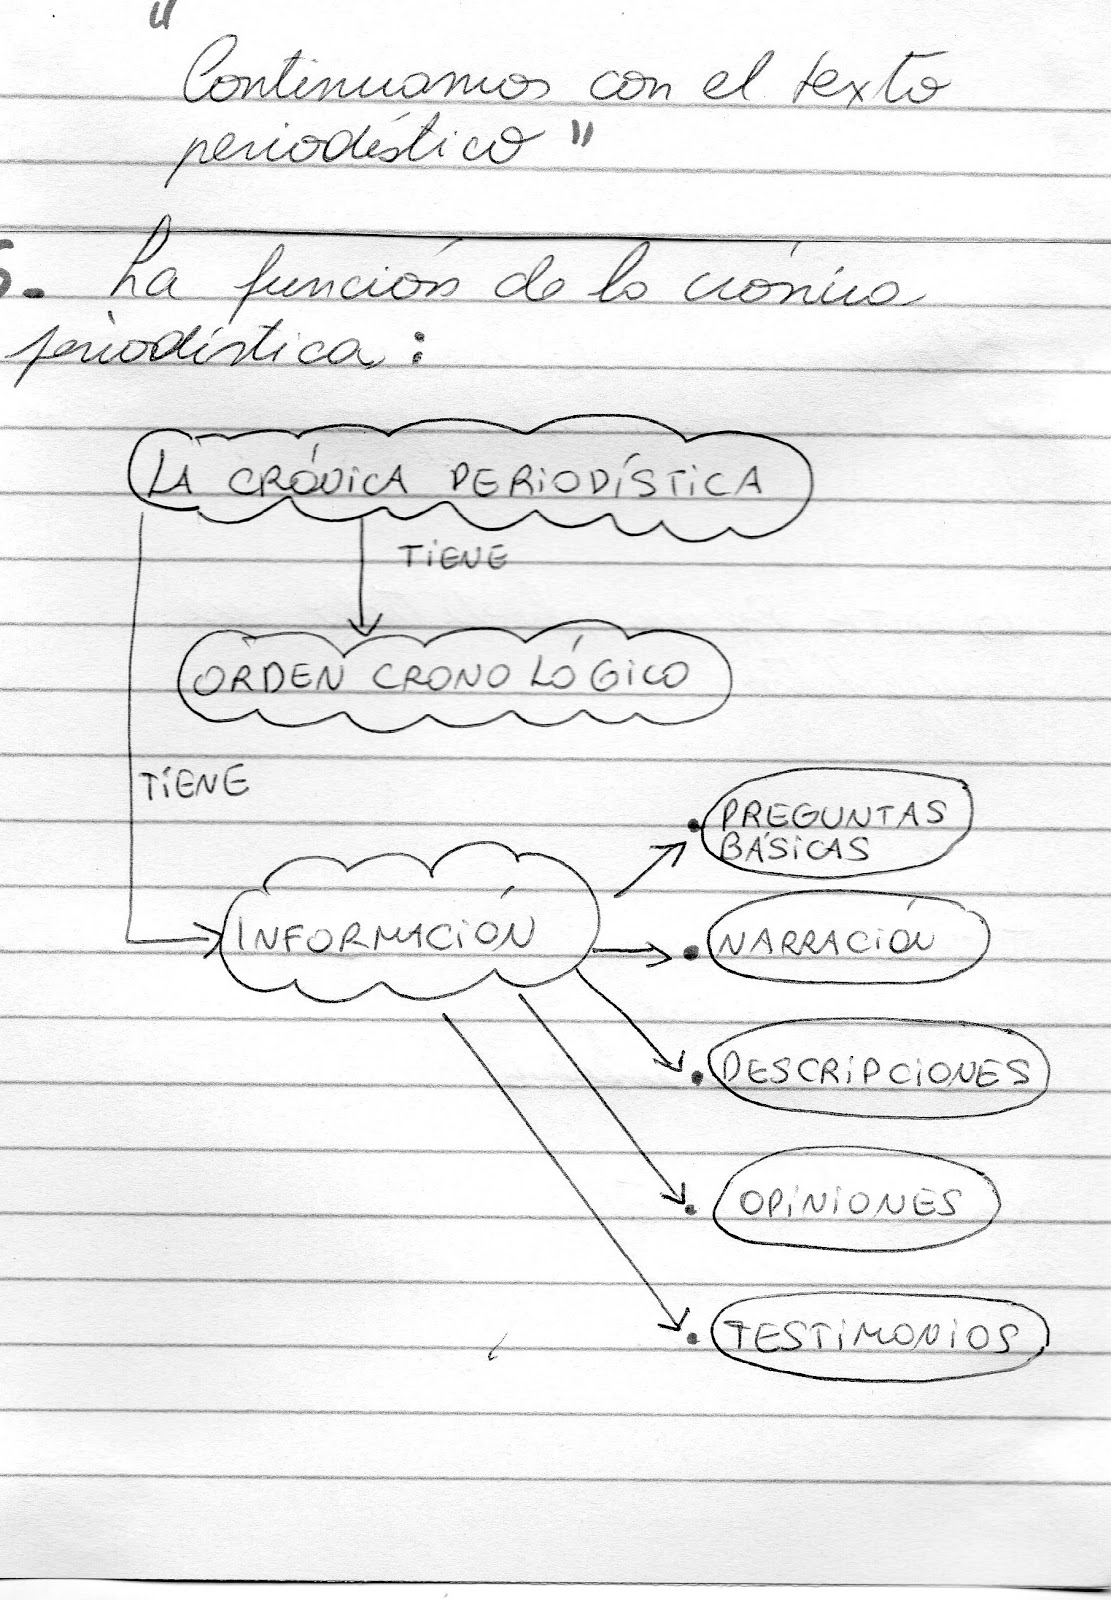 "
Continuamos con el texto
periodístico"
5. La función de la crónica
periodística:
LA CRÓNICA PERIODÍSTICA
TIENE
ORDEN CRONOLÓGICO
TIENE
PREGUNTAS
BÁSICAS
INFORMACIÓN
NARRACIÓN
DESCRIPCIONES
OPINIONES
TESTIMONIOS